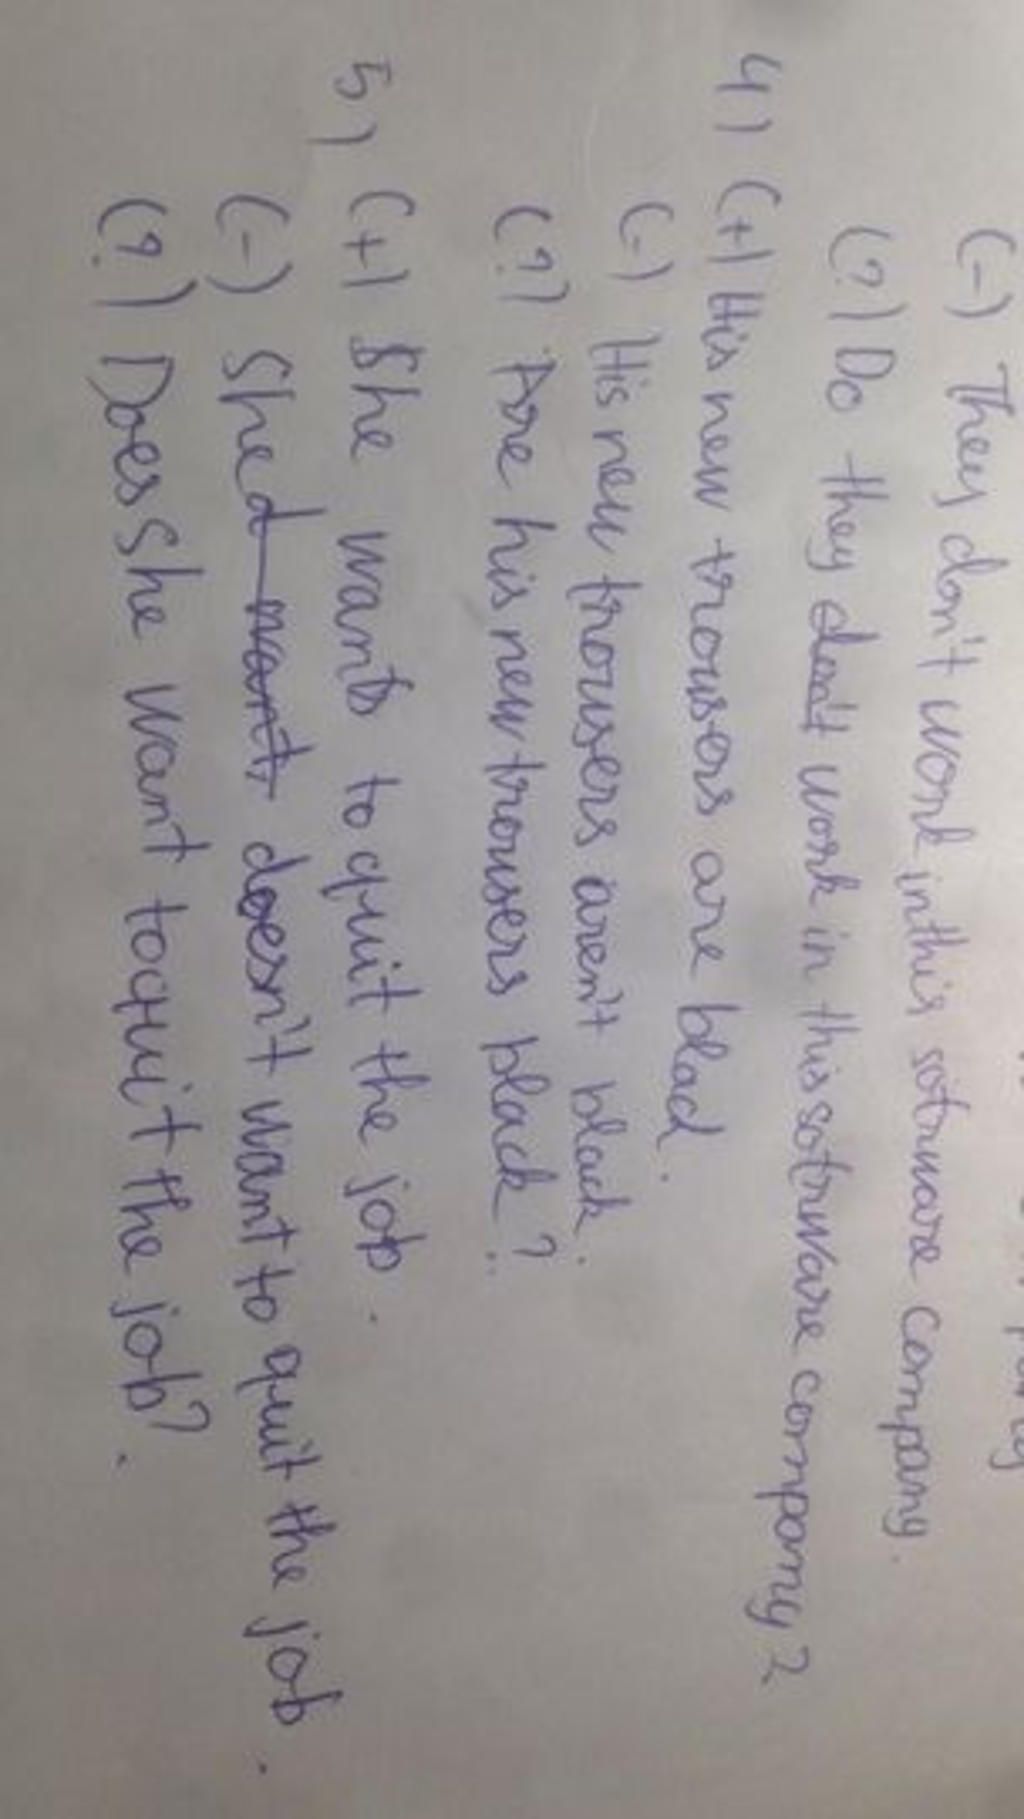 (-) They don't work in this sotware company.
(?) Do they work in this sotware company?
4) (+) His new trousers are blad.
(-) His new trousers aren't black.
(?) Are his new trousers black?
5) (+) She wants to quit the job.
(-) She doesn't want to quit the job.
(?) Does she want to quit the job?